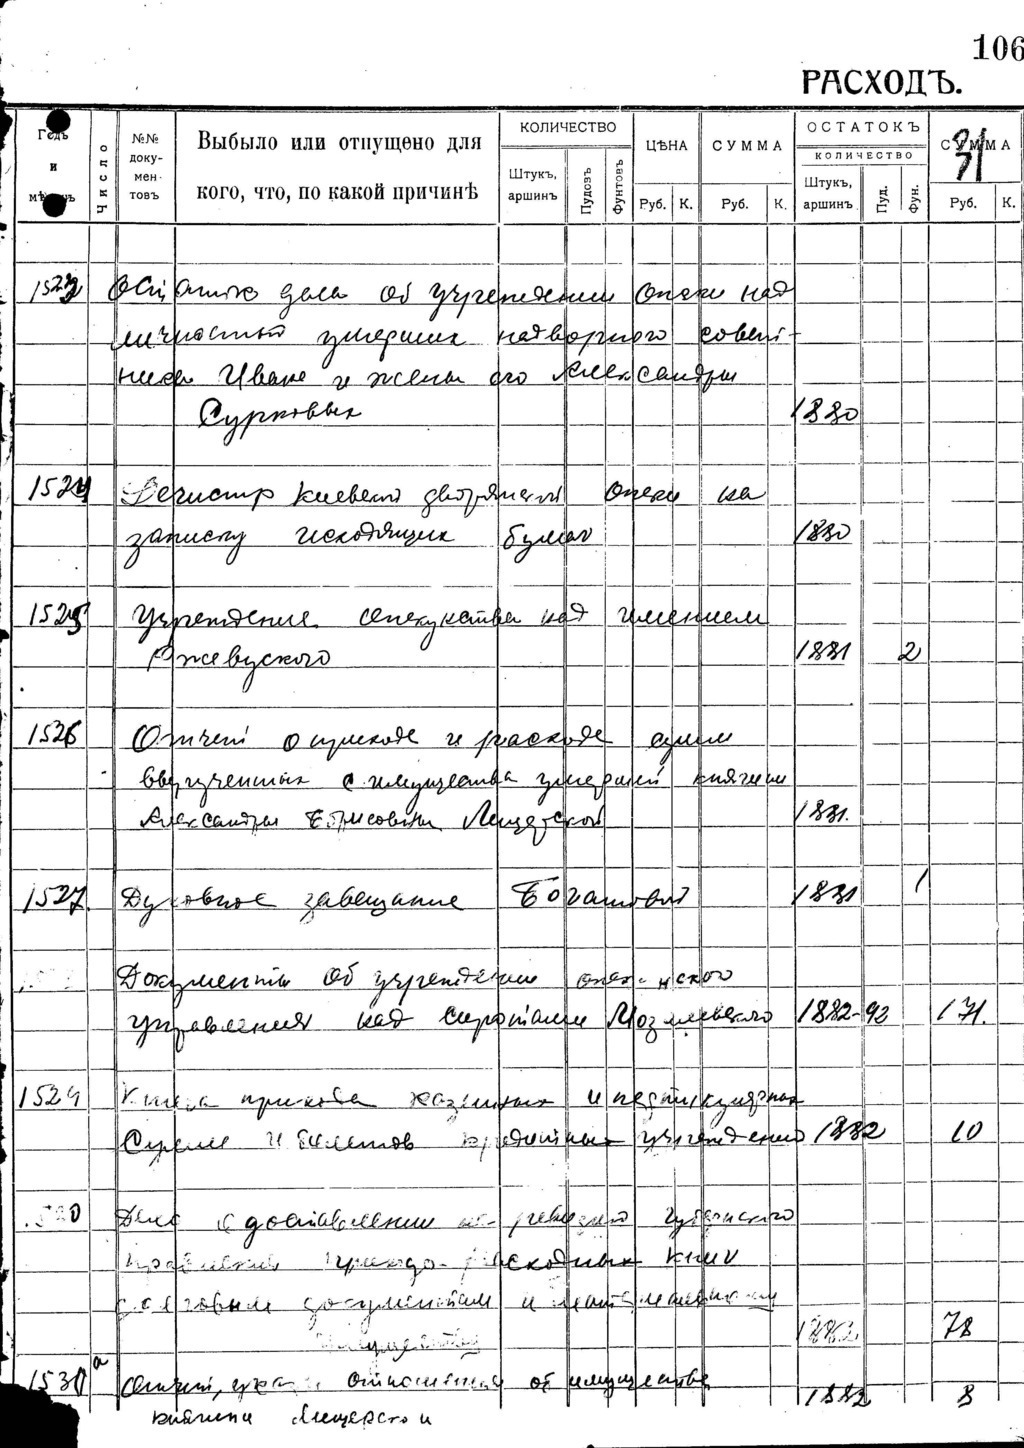 106
РАСХОДЪ.
Годъ и мѣсяцъ
Число
№№ документовъ
Выбыло или отпущено для
кого, что, по какой причинѣ
КОЛИЧЕСТВО
Штукъ, аршинъ
Пудовъ
Фунтовъ
ЦѢНА
Руб. К.
СУММА
Руб. К.
ОСТАТОКЪ
КОЛИЧЕСТВО
Штукъ, аршинъ
Пуд.
Фун.
СУММА
Руб. К.
31
1523 дела об учреждении опеки над
личностью умерших надворного совет-
ника Ивана и жены его Александры
Сурковых 1880
1524 Регистр Киевской дворянской опеки на
записку исходящих бумаг 1880
1525 Учреждение опекунства над имением
Ржевуского 1881 2
1526 Отчет о приходе и расходе сумм
вырученных с имущества умершей княгини
Александры Борисовны Мещерской 1881.
1527. Духовное завещание 1881 1
Документы об учреждении опекунского
управления над сиротами 1882-92 171.
1529 Книга прихода казенных и партикулярных
сумм и билетов кредитных учреждений 1882 10
1530 Дело о доставлении на ревизию Губернского
правления приходо-расходных книг
с долговым документам и
имущества 1882 78
1530а Отчет, отношения об имуществе
княгини Мещерской 1882 8